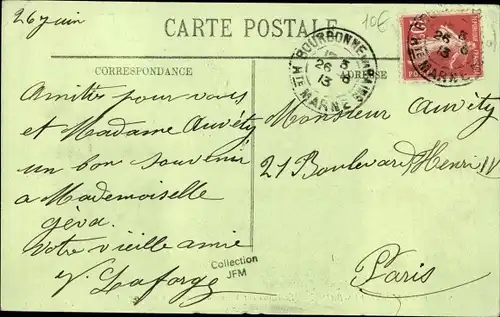 26 juin
CARTE POSTALE
10€
CORRESPONDANCE
ADRESSE
BOURBONNE LES BAINS
26 - 8
13
Hte MARNE
Amitiés pour vous
et Madame Auvéty
un bon souvenir
à Mademoiselle
géva.
Votre vieille amie
V. Laforge
Monsieur Auvéty
21 Boulevard Henri IV
Paris
Collection
JFM